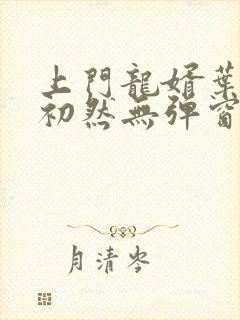 上門龍婿葉
初然無彈窗
月清岑